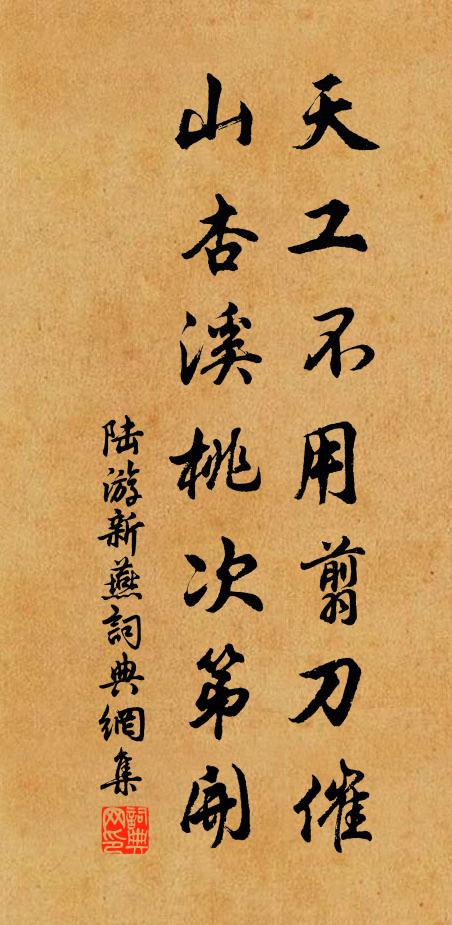 天工不用翦刀催
山杏溪桃次第開
陆游新燕詞典網集
詞典网印